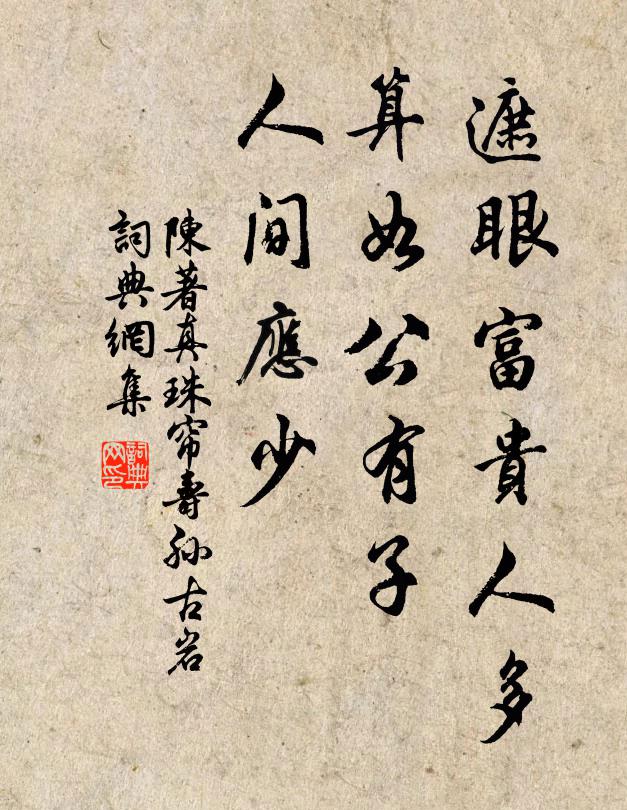 遮眼富貴人多
算如公有子
人間應少
陳著真珠帘壽孫古岩
詞典網集
詞典网印